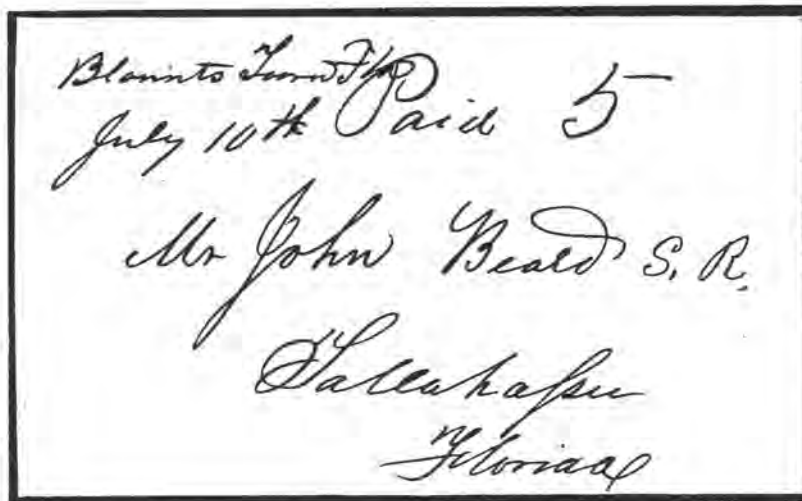 Blounts Town Fla Paid 5
July 10th
Mr John Beard S. R.
Tallahassee
Florida